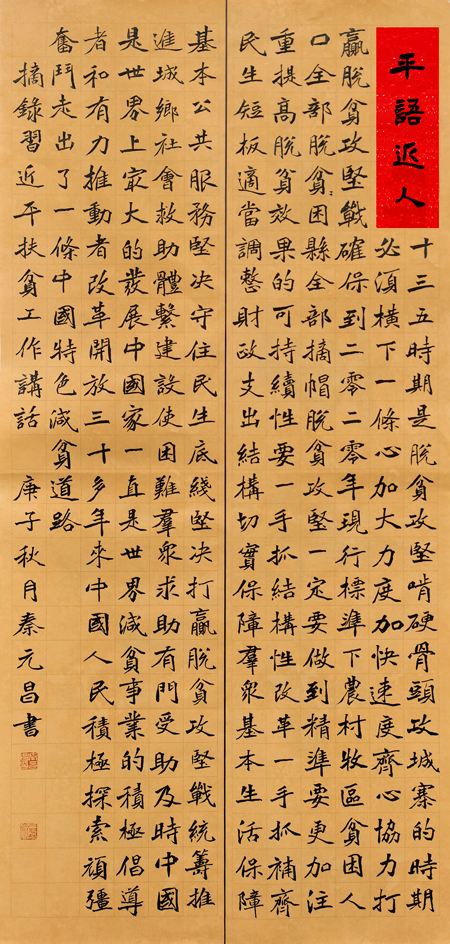 平語近人
十三五時期是脫貧攻堅啃硬骨頭攻城寨的時期
必須橫下一條心加大力度加快速度齊心協力打
贏脫貧攻堅戰確保到二零二零年現行標準下農村牧區貧困人
口全部脫貧困縣全部摘帽脫貧攻堅一定要做到精準要更加注
重提高脫貧效果的可持續性要一手抓結構性改革一手抓補齊
民生短板適當調整財政支出結構切實保障羣衆基本生活保障
基本公共服務堅决守住民生底綫堅决打贏脫貧攻堅戰統籌推
進城鄉社會救助體繫建設使困難羣衆求助有門受助及時中國
是世界上冣大的發展中國家一直是世界減貧事業的積極倡導
者和有力推動者改革開放三十多年來中國人民積極探索頑彊
奮鬥走出了一條中國特色減貧道路
摘錄習近平扶貧工作講話 庚子秋月秦元昌書